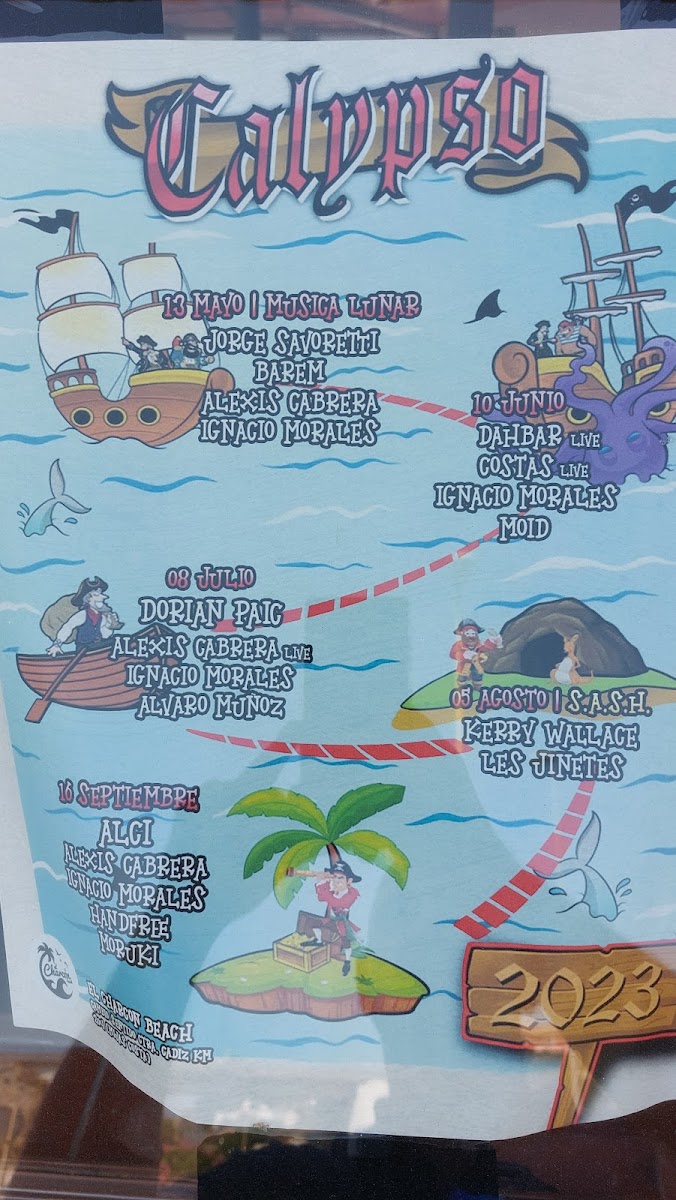 Calypso
13 MAYO | MUSICA LUNAR
JORGE SAVORETTI
BAREM
ALEXIS CABRERA
IGNACIO MORALES
10 JUNIO
DAHBAR LIVE
COSTAS LIVE
IGNACIO MORALES
MOID
08 JULIO
DORIAN PAIC
ALEXIS CABRERA LIVE
IGNACIO MORALES
ALVARO MUÑOZ
05 AGOSTO | S.A.S.H.
KERRY WALLACE
LES JINETES
16 SEPTIEMBRE
ALCI
ALEXIS CABRERA
IGNACIO MORALES
HANDFREE
MORUKI
2023
EL CHARCON BEACH
CTRA. CADIZ KM